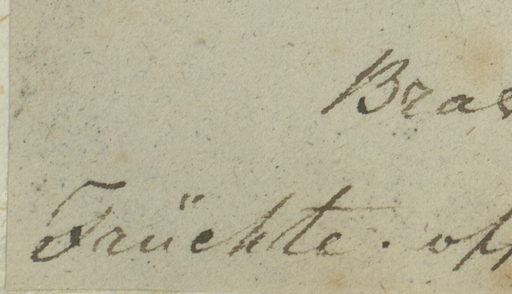 Bras
Früchte. off